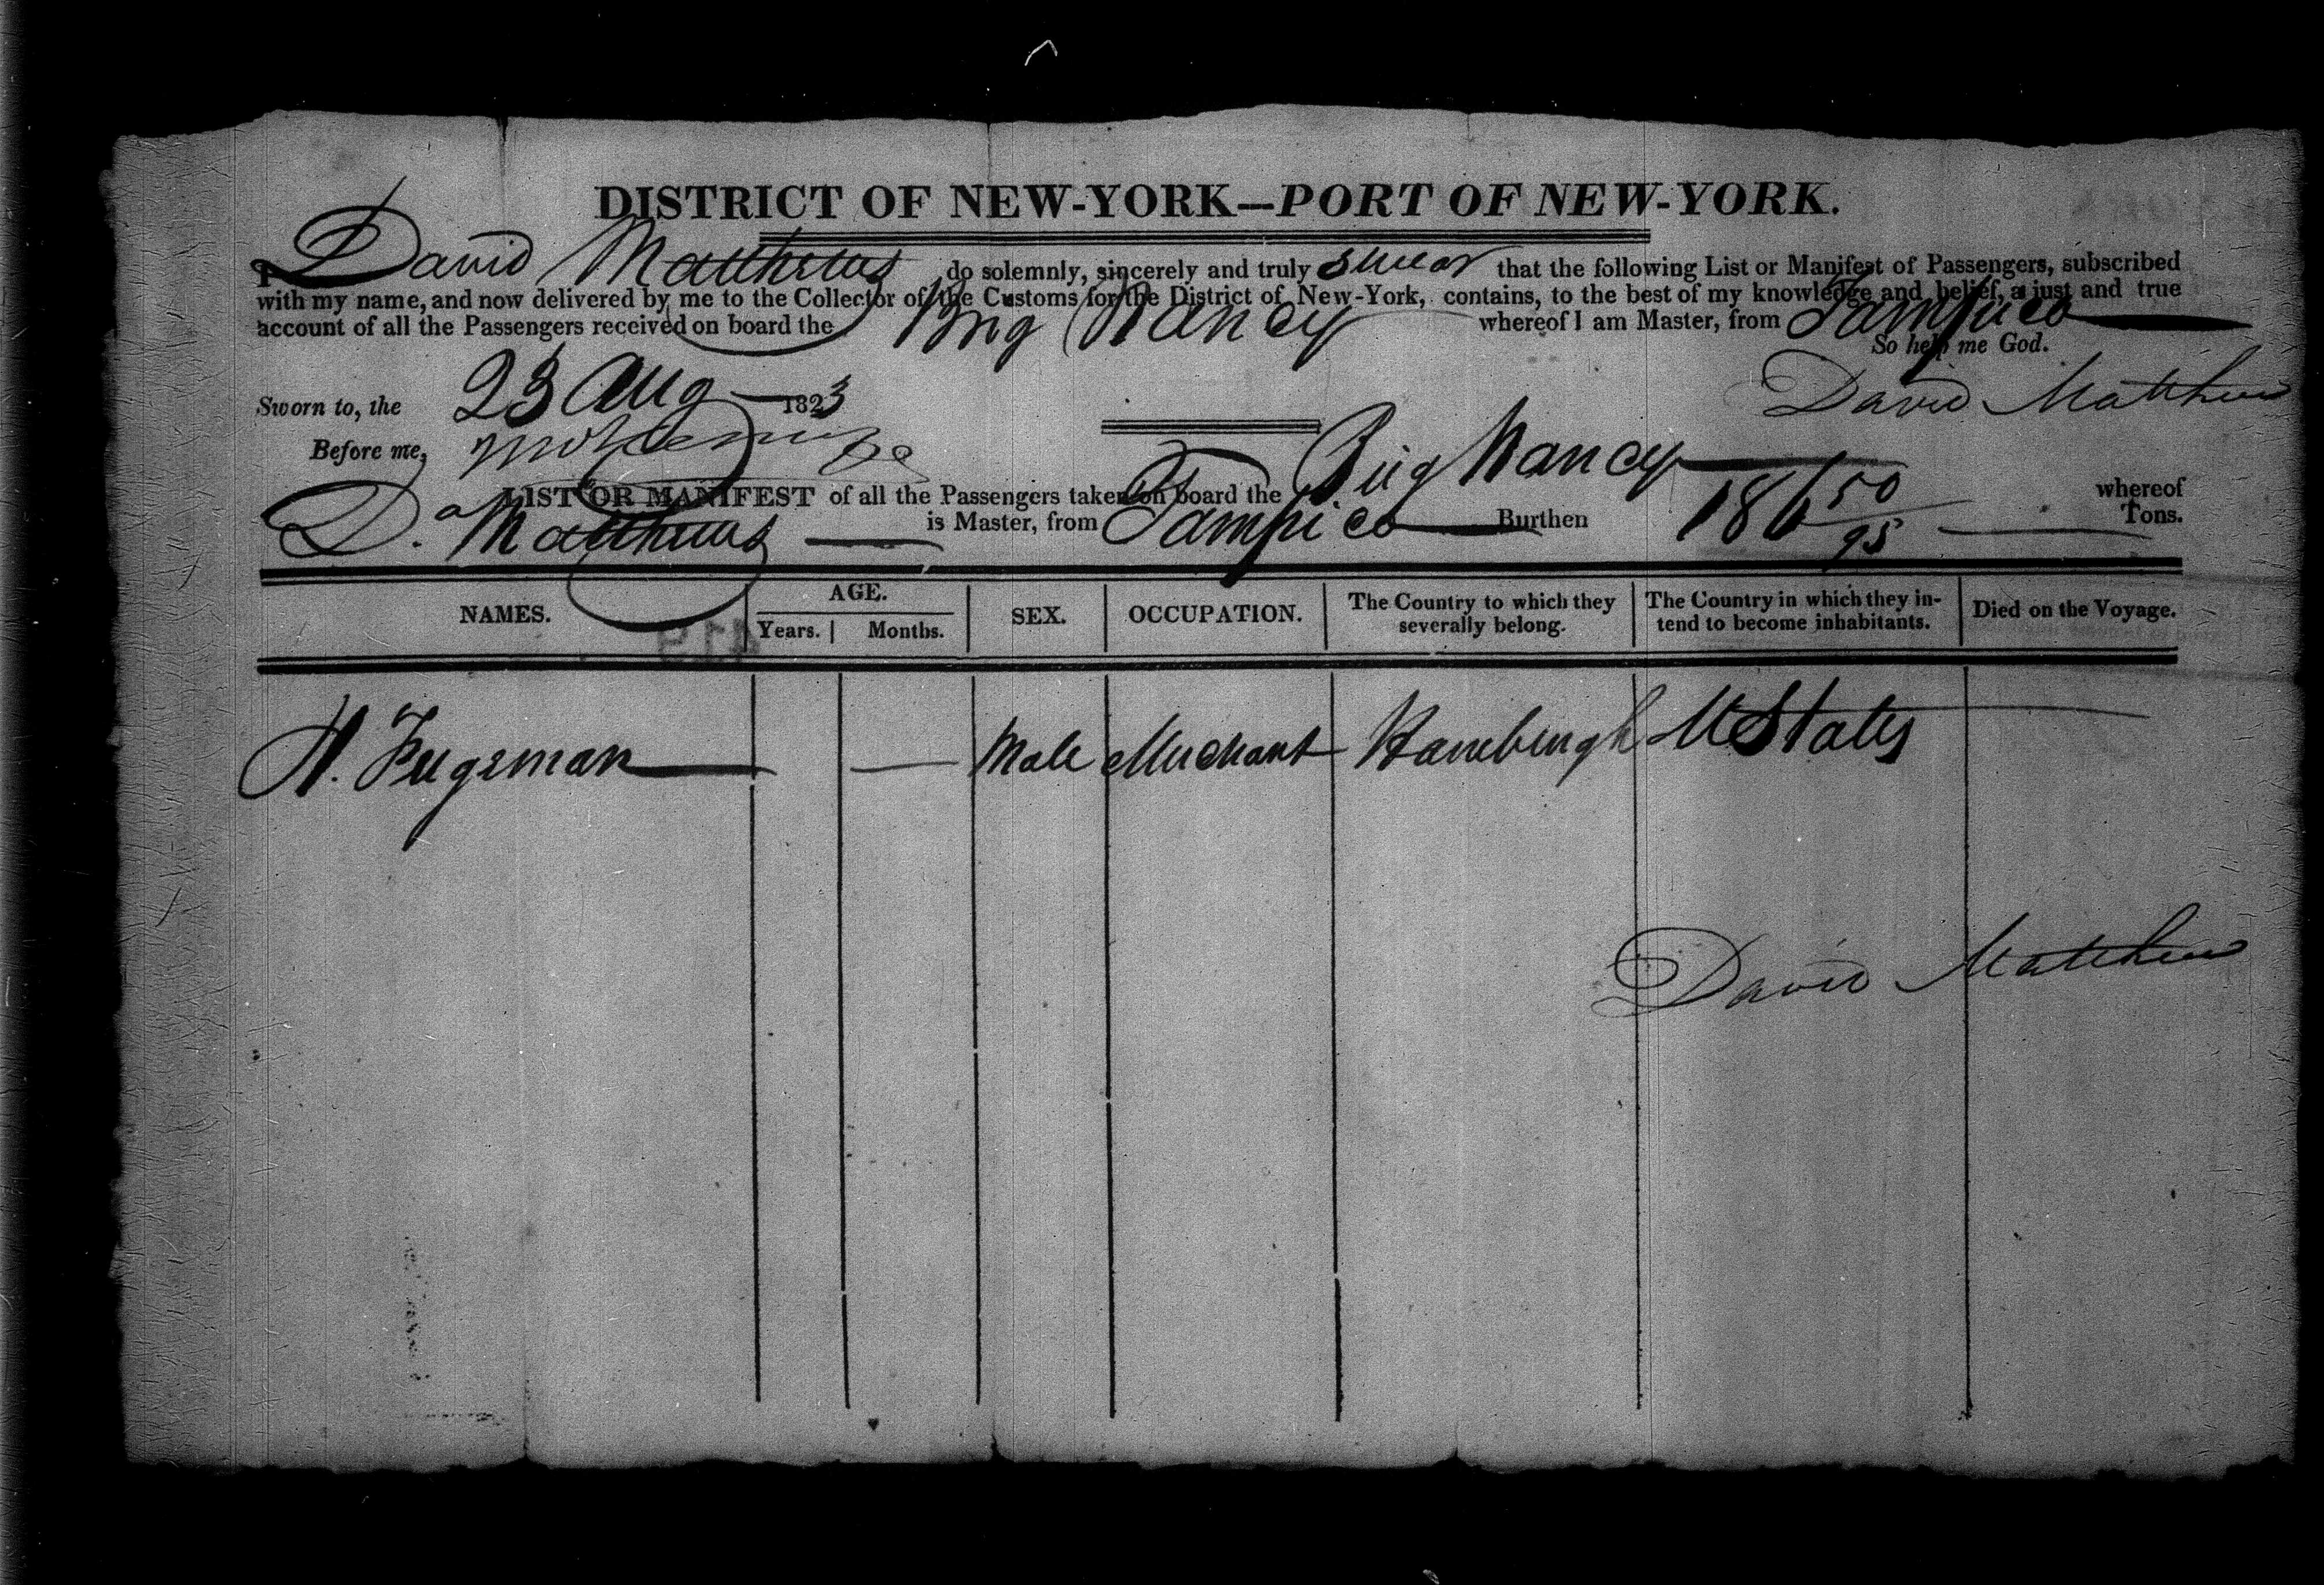 DISTRICT OF NEW-YORK—PORT OF NEW-YORK.
I David Matthews do solemnly, sincerely and truly swear that the following List or Manifest of Passengers, subscribed
with my name, and now delivered by me to the Collector of the Customs for the District of New-York, contains, to the best of my knowledge and belief, a just and true
account of all the Passengers received on board the Brig Nancy whereof I am Master, from Tampico
So help me God.
Sworn to, the 23 Aug 1823
David Matthews
Before me,
LIST OR MANIFEST of all the Passengers taken on board the Brig Nancy whereof
D. Matthews is Master, from Tampico Burthen 186 50/95 Tons.
NAMES. AGE. Years. Months. SEX. OCCUPATION. The Country to which they severally belong. The Country in which they intend to become inhabitants. Died on the Voyage.
H. Fugeman — Male Merchant Hamburgh U States
David Matthews